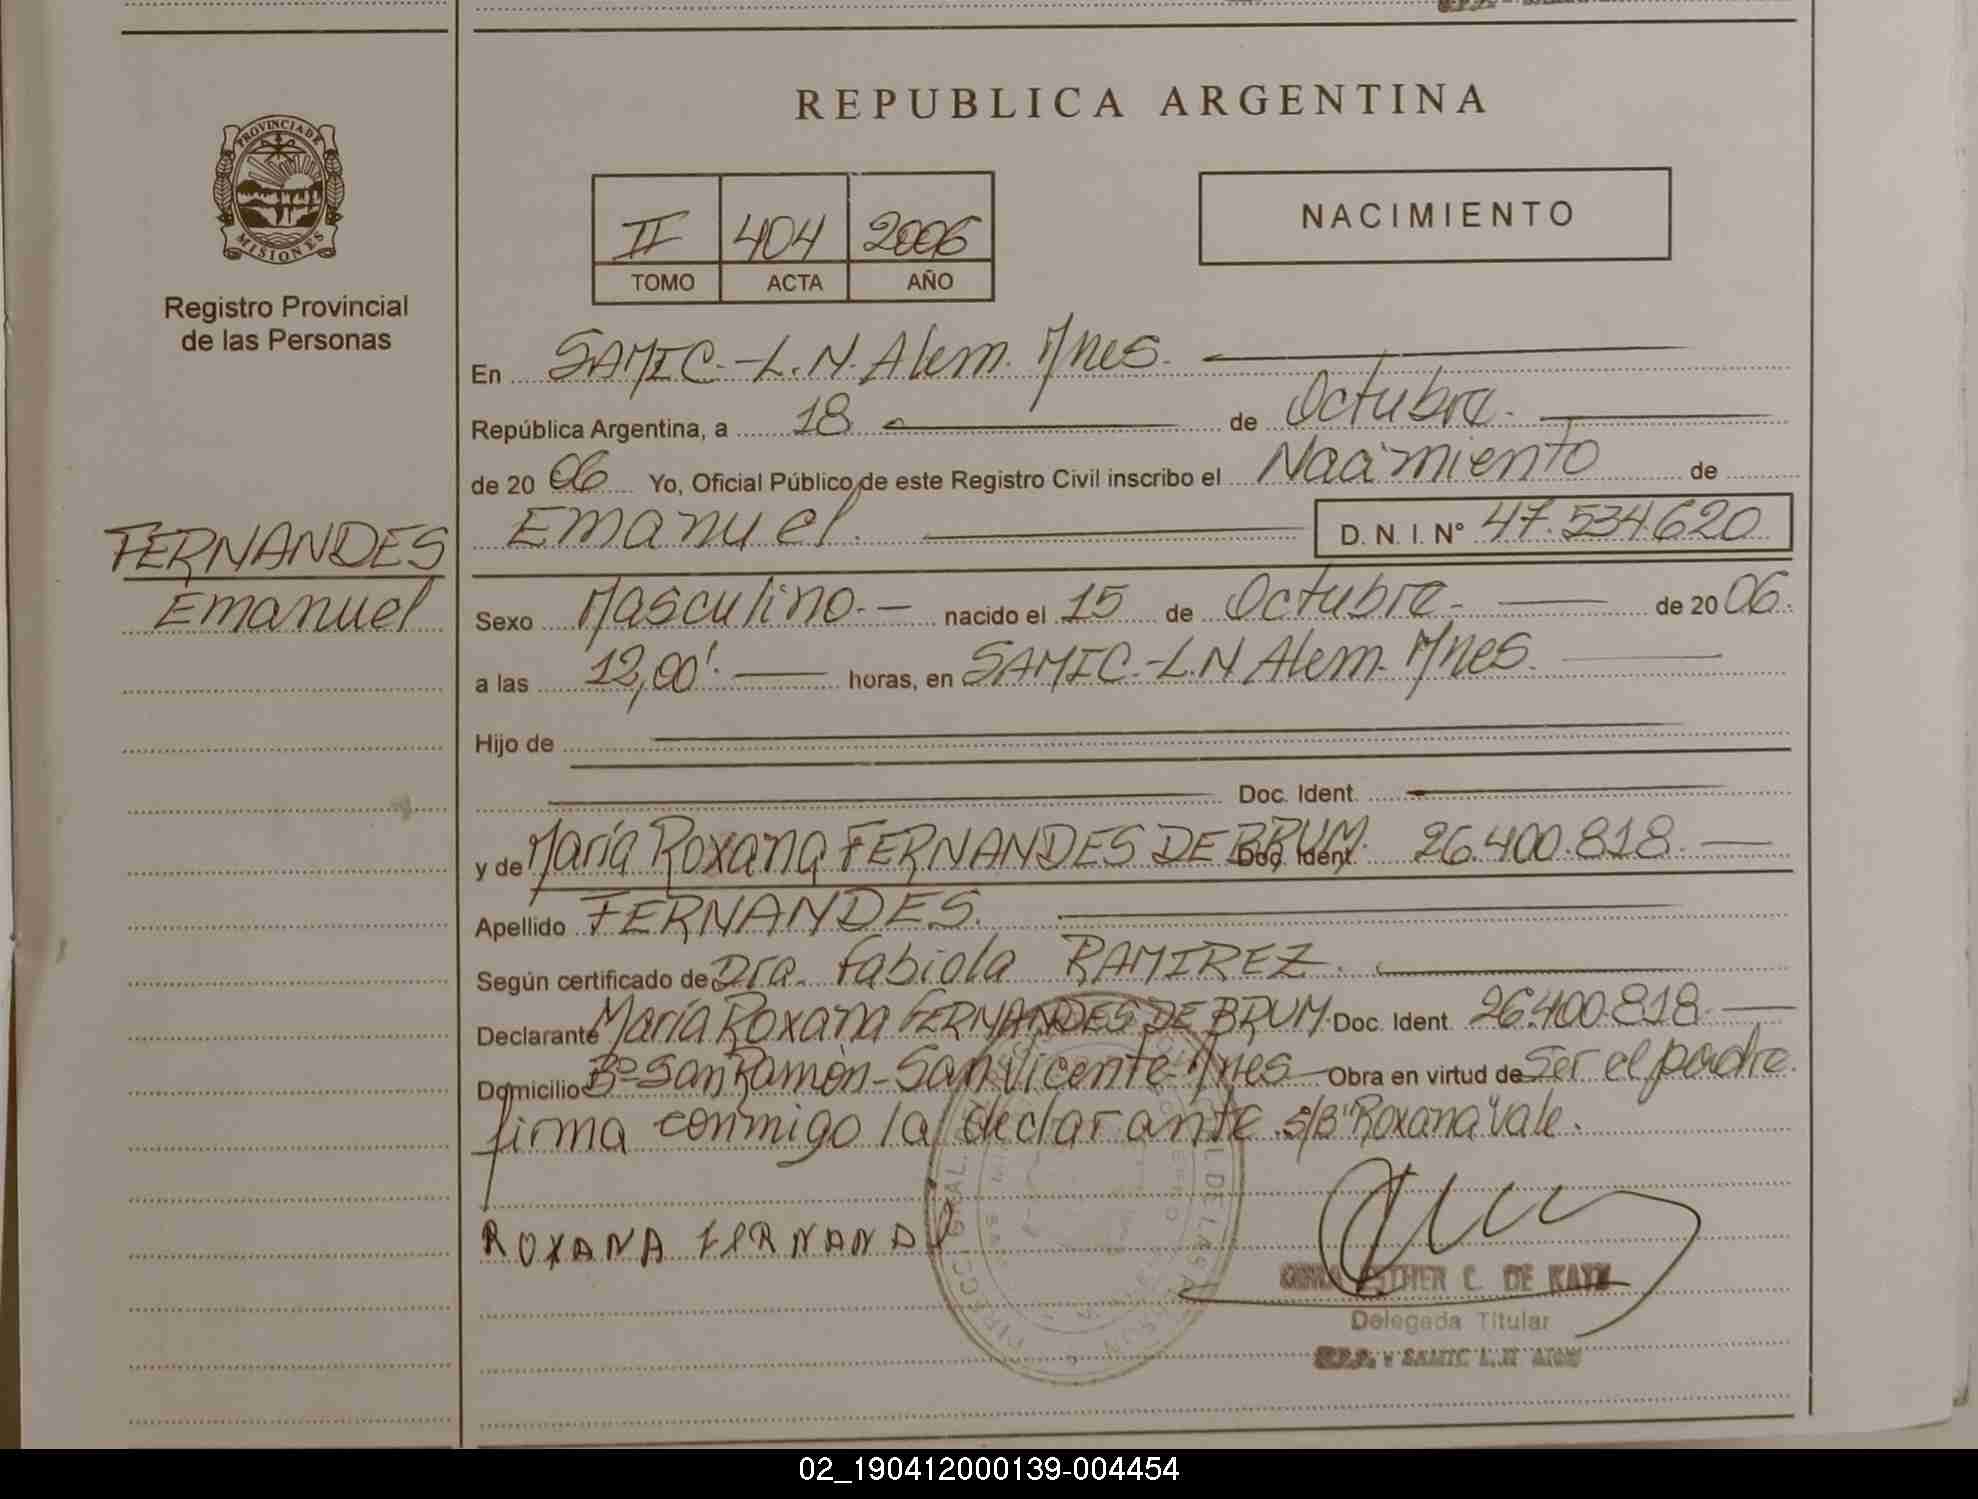 REPUBLICA ARGENTINA
PROVINCIA DE
MISIONES
Registro Provincial
de las Personas
II 404 2006
TOMO ACTA AÑO
NACIMIENTO
En SAMIC.-L.N.Alem. Mnes.
República Argentina, a 18 de Octubre.
de 20 06 Yo, Oficial Público de este Registro Civil inscribo el Nacimiento de
Emanuel. D. N. I. N° 47.534.620
FERNANDES
Emanuel
Sexo Masculino.- nacido el 15 de Octubre- de 20 06.
a las 12,00'. horas, en SAMIC.-L.N Alem. Mnes.
Hijo de
Doc. Ident.
y de María Roxana FERNANDES DE BRUM. Doc. Ident. 26.400.818.
Apellido FERNANDES.
Según certificado de Dra. Fabiola RAMIREZ.
Declarante María Roxana FERNANDES DE BRUM. Doc. Ident. 26.400.818.
Domicilio B° San Ramón-San Vicente-Mnes Obra en virtud de Ser el padre.
firma conmigo la declarante. s/B "Roxana" Vale.
ROXANA FERNAND
ESTHER C. DE KATZ
Delegada Titular
SAMIC L.N ALEM
02_190412000139-004454